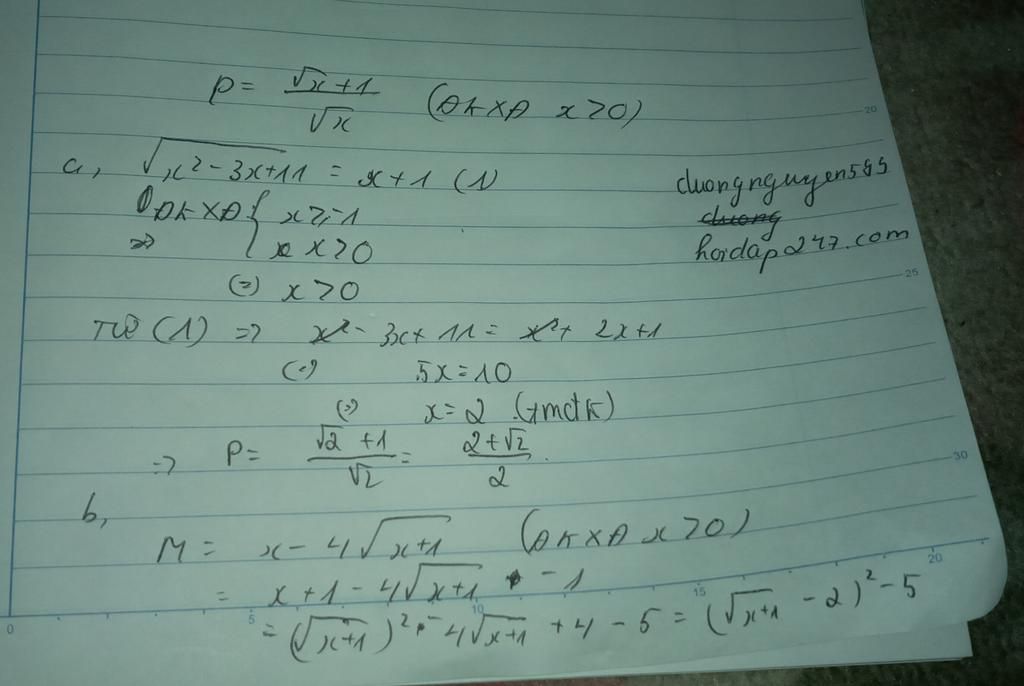 P = (√x + 1)/√x (ĐKXĐ x > 0)
a, √(x² - 3x + 11) = x + 1 (1)
ĐKXĐ { x ≥ -1
=> x > 0
(=) x > 0
Từ (1) => x² - 3x + 11 = x² + 2x + 1
(=) 5x = 10
(=) x = 2 (tmđk)
=> P = (√2 + 1)/√2 = (2 + √2)/2.
b,
M = x - 4√(x+1) (ĐKXĐ x > 0)
= x + 1 - 4√(x+1) - 1
= (√(x+1))² - 4√(x+1) + 4 - 5 = (√(x+1) - 2)² - 5
duongnguyen585
duong
hoidap247.com
20
25
30
0
5
10
15
20